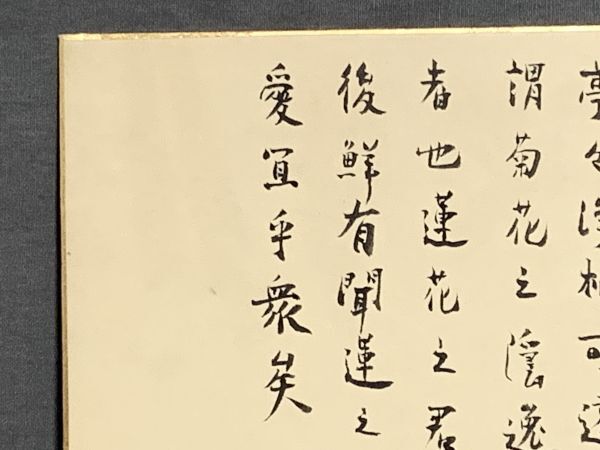 亭々淨植可遠
謂菊花之隱逸
者也蓮花之君
後鮮有聞蓮之
愛宜乎衆矣